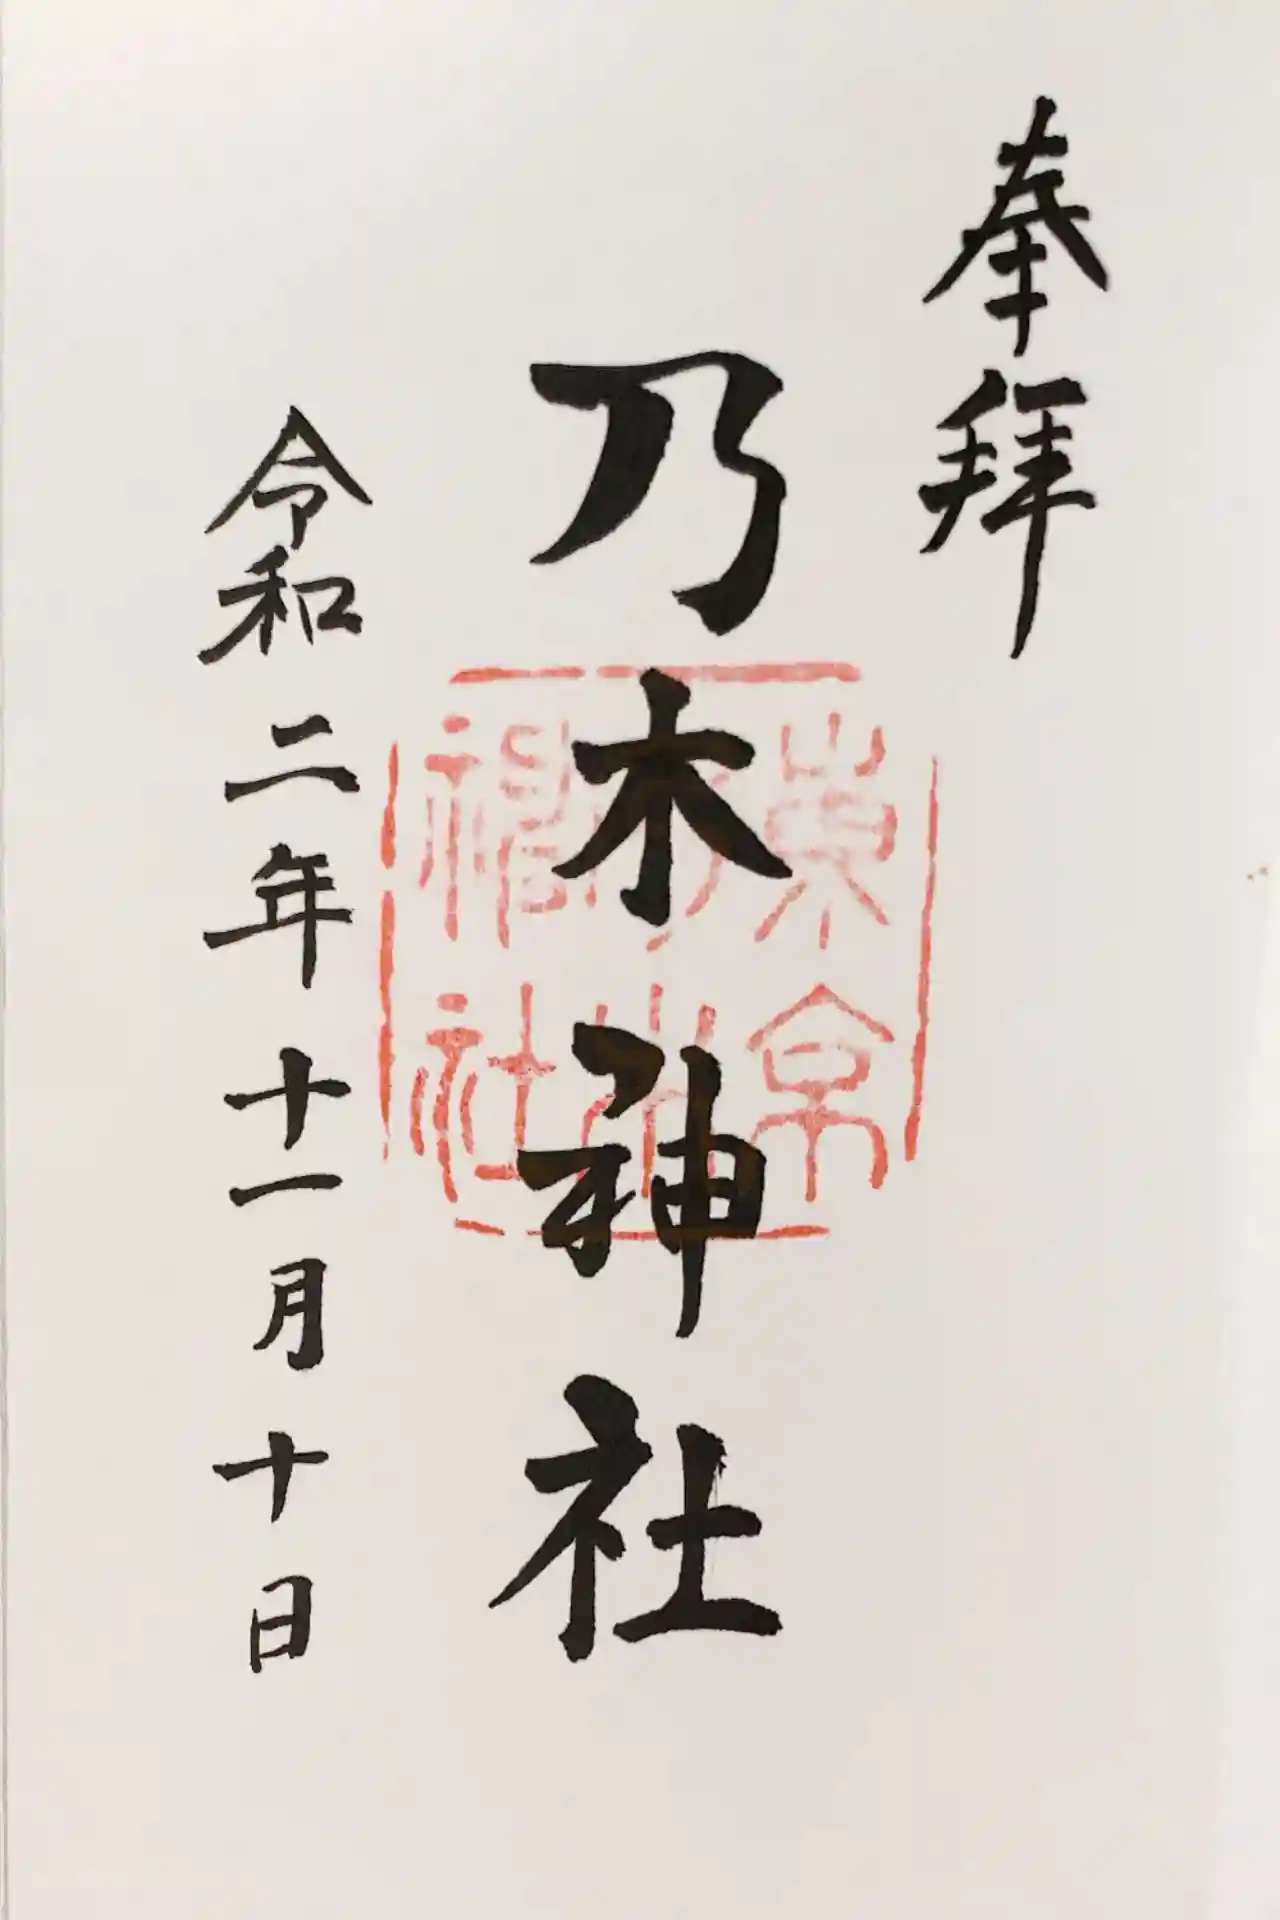 奉拝
乃木神社
東京
乃木
神社
令和二年十一月十日